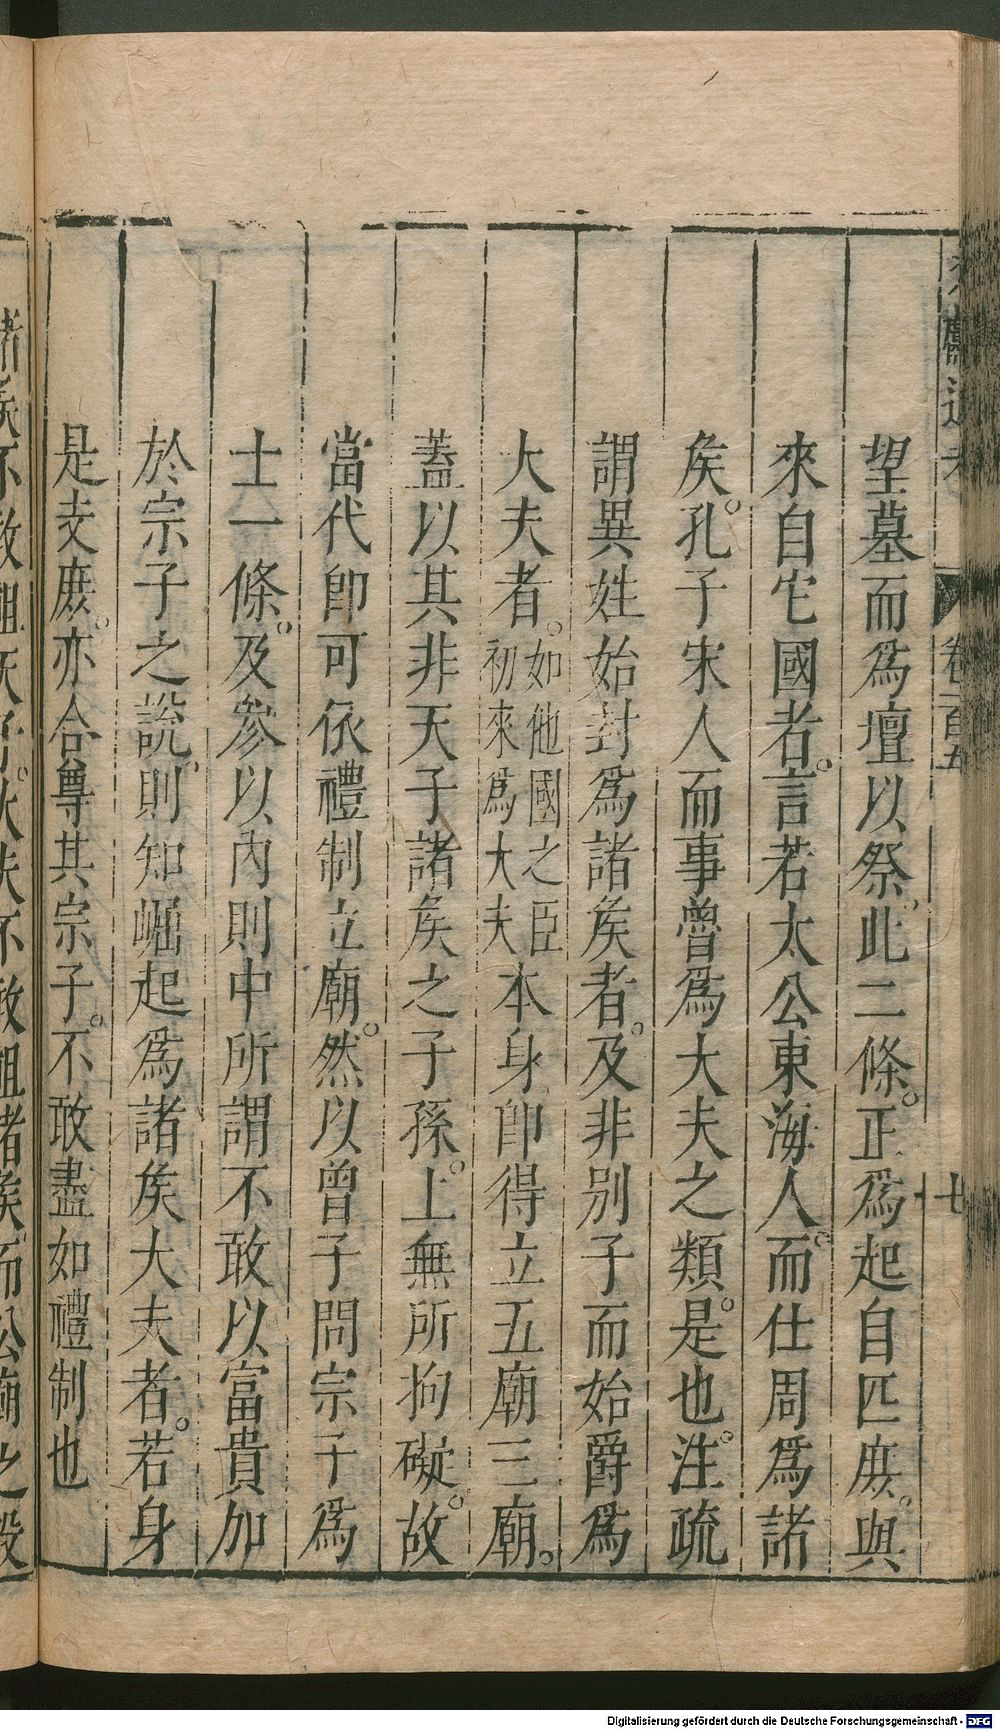 望墓而爲壇以祭此二條。正爲起自匹庶。與
來自它國者。言若太公東海人。而仕周爲諸
矦。孔子宋人而事魯爲大夫之類。是也。注疏
謂異姓始封爲諸矦者。及非别子而始爵爲
大夫者。如他國之臣初來爲大夫本身即得立五廟三廟。
蓋以其非天子諸矦之子孫。上無所拘礙。故
當代即可依禮制立廟。然以曾子問宗子爲
士一條。及參以内則中所謂不敢以富貴加
於宗子之說、則知崛起爲諸矦大夫者。若身
是支庶。亦合尊其宗子。不敢盡如禮制也
諸矦不敢祖天子。大夫不敢祖諸矦。而公廟之設
卷一百五
七
Digitalisierung gefördert durch die Deutsche Forschungsgemeinschaft - DFG